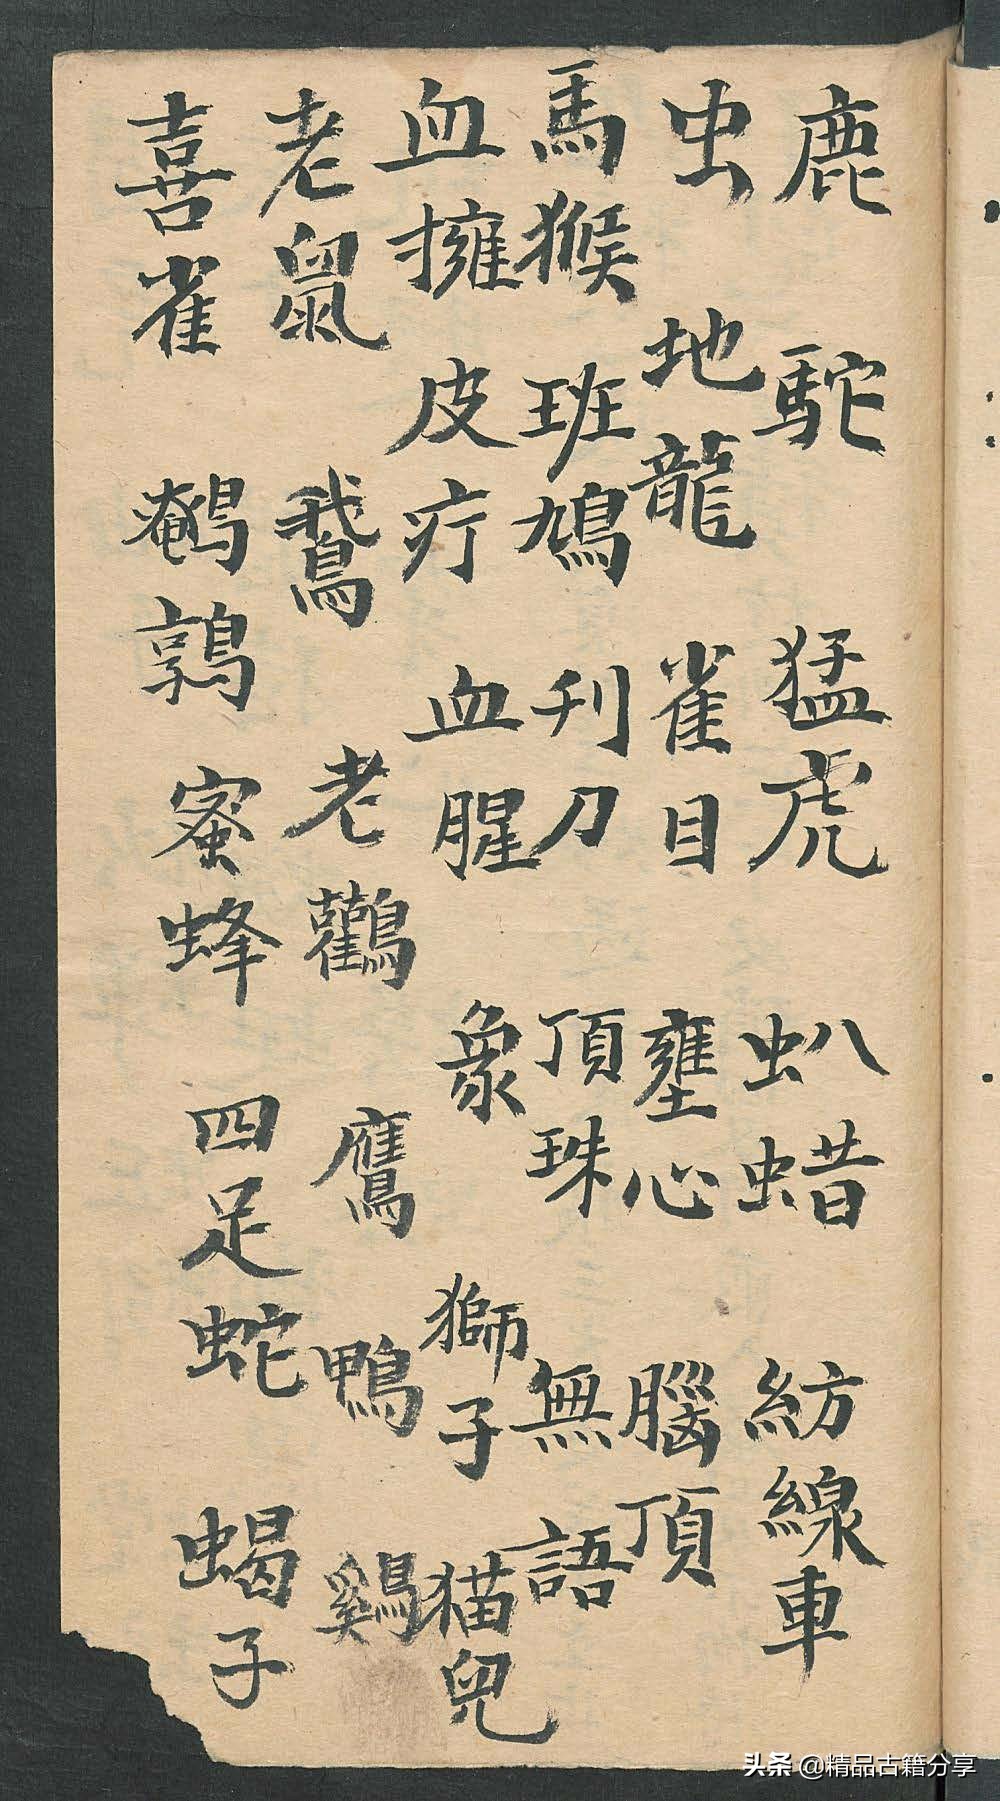 鹿 駝 猛虎 虯蜡 紡線車
虫 地龍 雀目 壅心 腦頂
馬猴 班鳩 刋刀 頂珠 無語
血擁 皮疔 血腥 象 獅子 猫兒
老鼠 鵝 老鸛 鷹 鴨 鷄
喜雀 鵪鶉 蜜蜂 四足蛇 蝎子
头条 @精品古籍分享